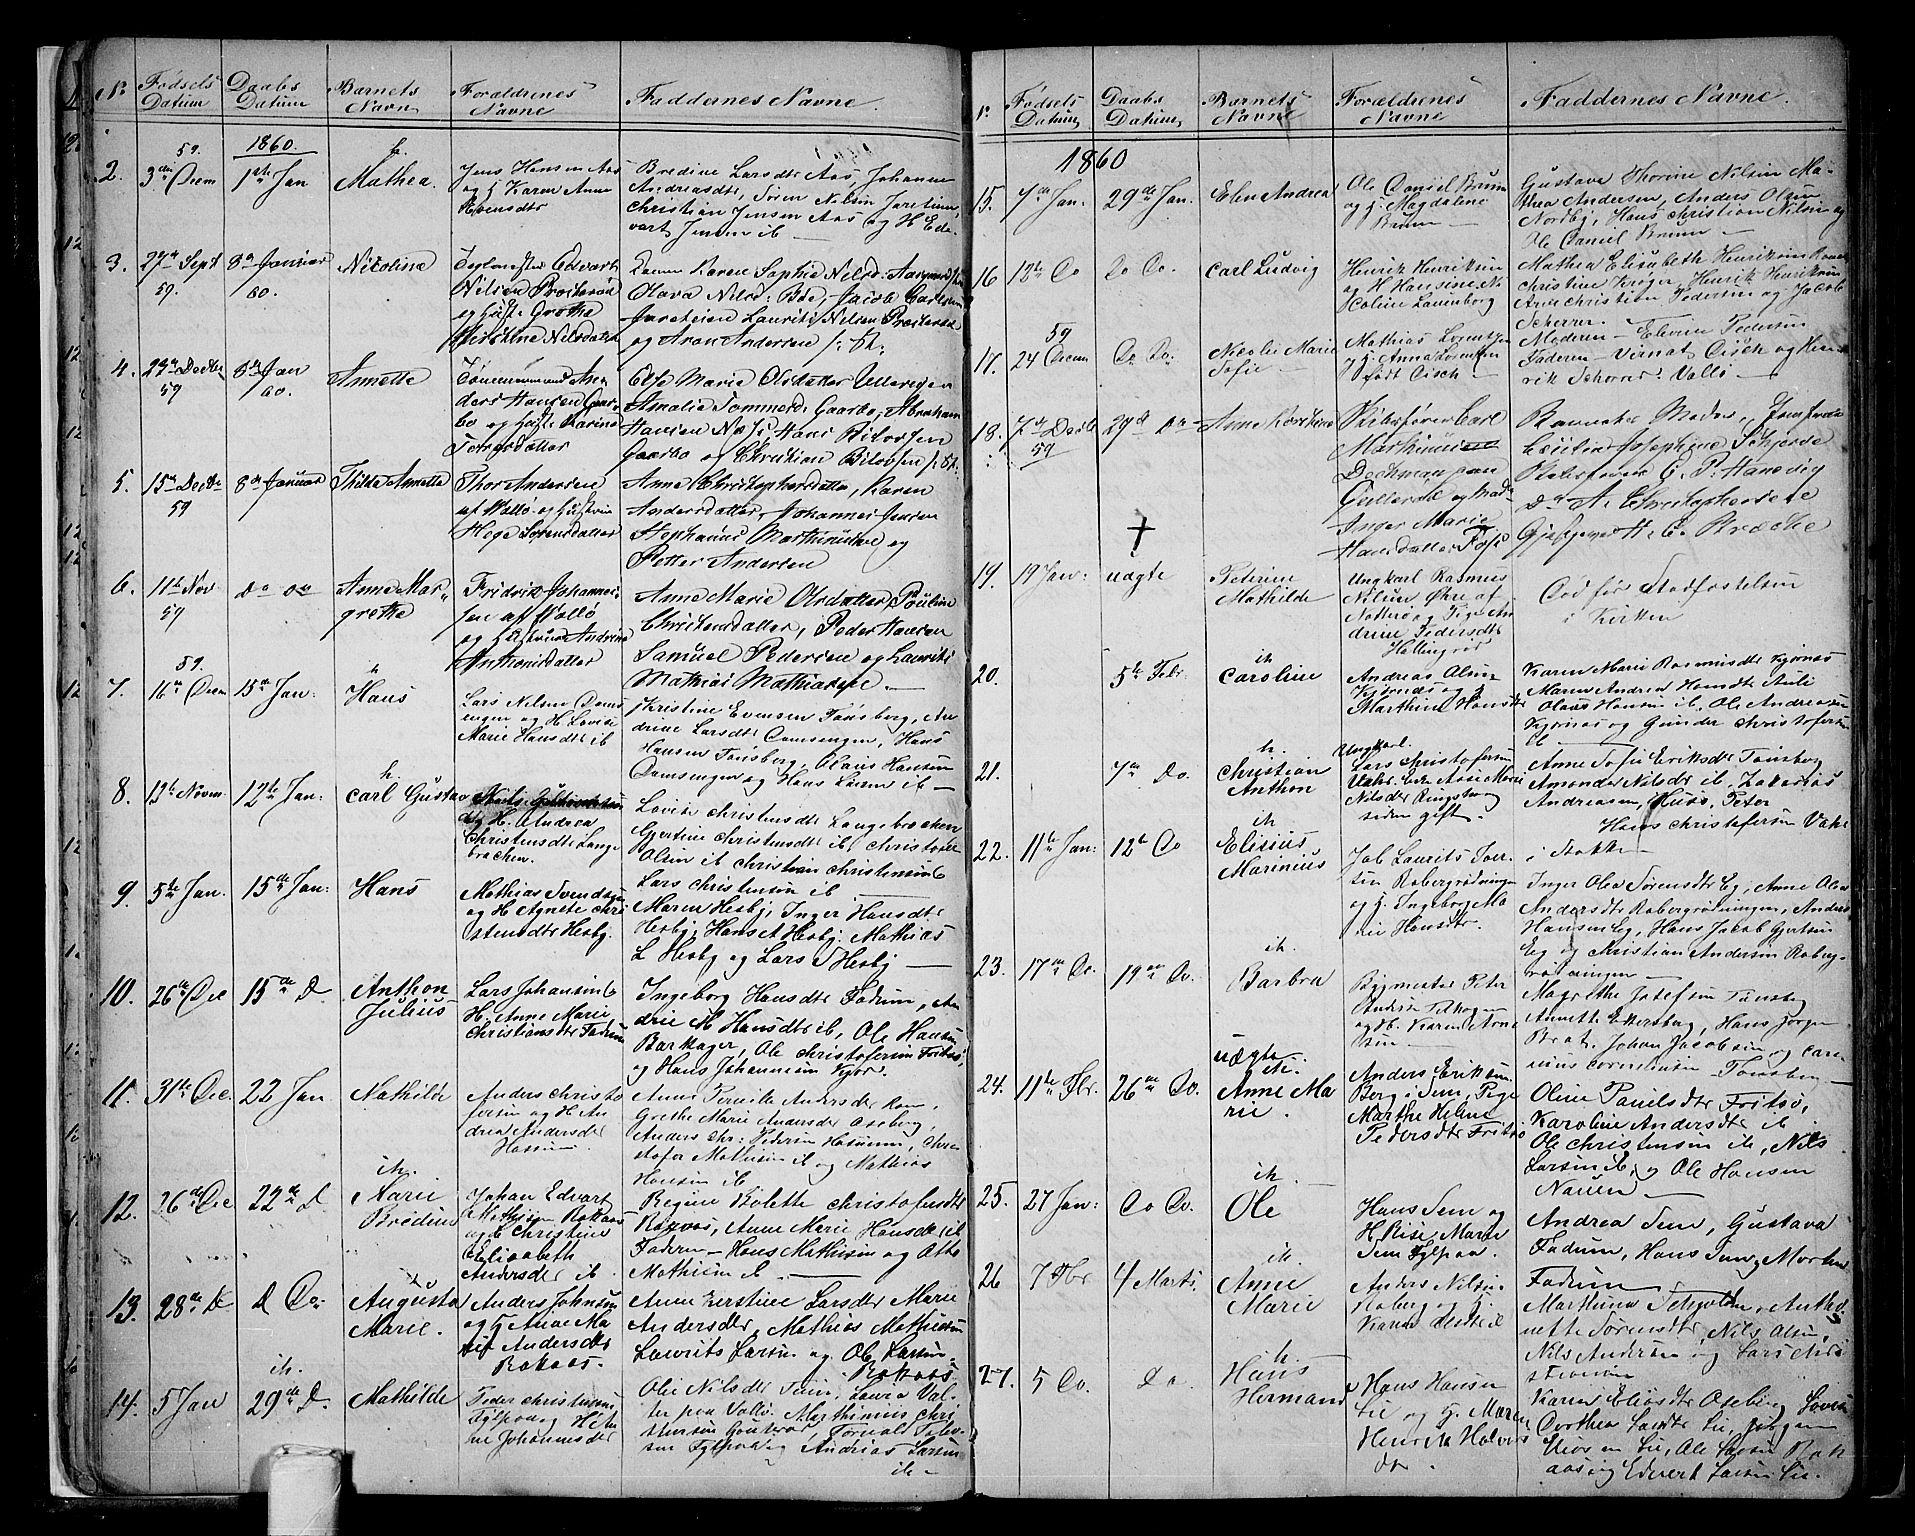 N° Fødsels Datum Daabs Datum Barnets Navn Forældrenes Navne Faddernes Navne.
59. 1860. h.
2. 3die Decm 1ste Jan Mathea.
Jens Hansen Aas
og Karen Anne
Evensdtr
Bredine Larsdtr Aas, Johanne
Andreasdtr, Søren Nilsen Jareteien,
Christian Jensen Aas og H Ed-
vart Jensen ib —
3. 27de Sept 59. 8de Januar 60. Nicoline
Edvart
Nilsen Præsterød
og Grethe
Kirstine Nilsdatter
Karen Sophie Nilsd: Aagaard
Olava Nilsd: Bøe, Jacob Carlsen
Jareteien Laurits Nilsen Præsterød
og Aron Andersen
4. 29de Decbr 59 8de Jan 60. Annette
Tømmermand An-
ders Hansen Gaar-
bo og Hustr. Karine
Torgersdatter
Else Marie Olsdatter Ullevigen
Amalie Tommersd. Gaarbo, Abraham
Hansen Næs, Hans Bilovsen
Gaarbo og Christian Bilovsen
5. 15de Decbr 59 8de Januar Thilda Annette
Thor Andersen
af Vallø og Hustru
Hege Sørensdatter
Anne Christophersdatter, Karen
Andersdatter, Johannes Jensen
Stephanus Mathiassen og
Petter Andersen
6. 11te Nov 59 Do Do Anne Mar-
grethe
Fridrik Johannes-
sen af Vallø
og Hustru Andrine
Anthonisdatter
Anne Marie Olsdatter, Pouline
Christensdatter, Peder Hansen
Samuel Pedersen og Laurits
Mathias Mathiassen —
59. h
7. 16de Decm 15de Jan: Hans
Lars Nilsen Dams-
engen og H. Lovise
Marie Hansdtr ib
Kristine Evensen Tønsberg, An-
drine Larsdtr Damsengen, Hans
Hansen Tønsberg, Olaus Hansen
Damsengen og Hans Larsen ib —
h.
8. 13de Novem 12te Jan: Carl Gustav
og H. Andrea
Christensdtr Lange-
brachen.
Lovise Christensdtr Langebrachen
Gjertine Christensdtr ib, Christoffer
Olsen ib Christian Christensen
Lars Christensen ib —
9. 5te Jan. 15de Jan: Hans
Mathias Svendsen
og H Agnete Chri-
stensdtr Hesby.
Maren Hesby, Inger Hansdtr
Hesby, Hans A Hesby, Mathias
L Hesby og Lars S Hesby —
10. 26de Dec 15de D. Anthon
Julius
Lars Johansen &
H. Anne Marie
Christiansdtr Fadum
Ingeborg Hansdtr Fadum, An-
drie M Hansdtr ib, Ole Hansen
Barkager, Ole Christofersen Fritsø,
og Hans Johannesen Kjær.
11. 31te Dec. 22 Jan Mathilde
Anders Christo-
fersen og H. An-
drea Andersdtr
Hassum.
Anne Pernille Andersdtr Rom,
Grethe Marie Andersdtr Oseberg,
Anders Chr: Pedersen Hassum, Chri-
stofer Mathisen ib og Mathias
Hansen ib
ih.
12. 26de Dec 22de D. Marie
Bredine
Johan Edvart
Mathisen Rakaas
og Christine
Elisabeth
Andersdtr ib.
Regine Bolette Christofersdtr
Rakaas, Anne Marie Hansdtr ib
Faderen — Hans Mathisen og Otto
Mathisen ib —
13. 28de D D Do. Augusta
Marie.
Anders Johnsen
og H Anne Ma-
rie Andersdtr
Rakaas.
Anne Kirstine Larsdtr Marie
Andersdtr, Mathias Mathisen
Laurits Larsen og Ole Larsen
Rakaas.
ih.
14. 5 Jan 29de D. Mathilde
Peder Christensen
Fylpaa og H An-
ne Johannesdtr
Olie Nilsdtr Fuin, Lovise Val-
ter paa Vallø, Marthinius Chri-
stensen Gouterød, Torvald Peder-
sen Fylpaa og Andreas Larsen
ib —
N° Fødsels Datum Daabs Datum Barnets Navne Forældrenes Navne Faddernes Navne.
1860
15. 7de Jan. 29de Jan. Elen Andrea
Ole Daniel Bruun
og H. Magdalene
Bruun —
Gustava Thorine Nilsen Ma-
thea Andersen, Anders Olsen
Nordby, Hans Christian Nilsen og
Ole Daniel Bruun —
16 13de Do Do Do. Carl Ludvig
Henrik Henriksen
og H. Hansine Ni-
coline Lauenborg
Mathea Elisabeth Henriksen
Christine Krøger, Henrik Henriksen
Arne Christian Pedersen og Jacob
Scherrer.
59
17. 24 Decm Do Do. Nicolie Marie
Sofie
Mathias Lorentzen
og H. Anna Lorentzen
født Cisch —
Moderen — Elevine Pedersen
Faderen — Vernat Cisch og Hen-
rik Schorer. Vallø —
18. 7de Decbr 59 29de Do Anne Kirstine
Skibsfører Carl
Marthinius
Dechman paa
Gullerød og Mad.
Inger Marie
Hansdatter Foss
Barnets Moder, Jomfrue
Cecilia Josephine Schjerve
Skibsfører C. P. Hansvig
Do A. Christophersen
Gjæstgiver H. C. Bræcke
†
19. 19 Jan: uægte Petrine
Mathilde
Ungkarl Rasmus
Nilsen Øhre af
Nøtterø og Pige An-
drine Pedersdtr
Hellingrød
Død før Stadfæstelsen
i Kirken
20. 5te Febr. ih Caroline
Andreas Olsen
Kjørnæs og H
Marthine Hansdtr
Karen Marie Rasmusdtr Kjørnæs
Maren Andrea Hansdtr Auli
Olaus Hansen ib. Ole Andreasen
Kjørnæs og Gunder Christofersen
ib —
21. 7de Do. h. Christian
Anthon
Ungkarl.
Lars Christofersen
Vaker, Enke Anne Marie
Nilsdtr Ringshaug
siden gift.
Anne Sofie Eriksdtr Tønsberg
Amonda Nilsdtr ib, Zakarias
Andreasen, Husø, Peter
Hans Christofersen Vake
i Stokke —
ih
22. 11te Jan: 12te Do Elisius
Marinius
Job Laurits Iver-
sen Robergrødningen
og H. Ingeborg Ma-
rie Hansdtr.
Inger Olea Sørensdtr Eg, Anne Olea
Andersdtr Robergrødningen, Anders
Hansen Eg, Hans Jakob Gjertsen
Eg og Christian Andersen Roberg-
rødningen —
ih.
23. 17de Do. 19de Do. Barbra
Bygmester Peter
Andreas
og H. Karen Arne-
sen —
Magrethe Josefsen Tønsberg
Annette Ekersberg, Hans Jørgen
Brat, Johan Jacobsen og Cari-
nius Cornelusen Tønsberg —
uægte
24. 11te Fbr. 26de Do. Anne Ma-
rie.
Anders Eriksen
Berg i Sem, Pige
Marthe Helene
Pedersdtr Fritsø
Oline Paulsdtr Fritsø,
Karoline Andersdtr ib
Ole Christensen ib, Nils
Larsen ib og Ole Hansen
Nauen —
ih.
25. 27 Jan: Do Do. Ole
Hans Sem og
H. Elise Marie
Sem Fylpaa.
Andrea Sem, Gustava
Fadum, Hans Sem, Morten
Fadum —
ih.
26 7 Fbr 4 Marts Anne
Marie
Anders Nilsen
Roberg og H.
Karen Olsdtr ib
Marthina Schjolden, Antho-
nette Sørensdtr, Nils Olsen,
Nils Andersen og Lars Nils
h.
27. 5 Do. Do Hans
Hermand
Hans Hansen
Lie og H. Maren
Henrikke Halvors-
dtr.
Karen Eliasdtr Oseberg Lovise
Dorthea Larsdtr Lie, Jørgen
Lie, Ole Larsen Rak-
aas og Edvert Larsen Lie.